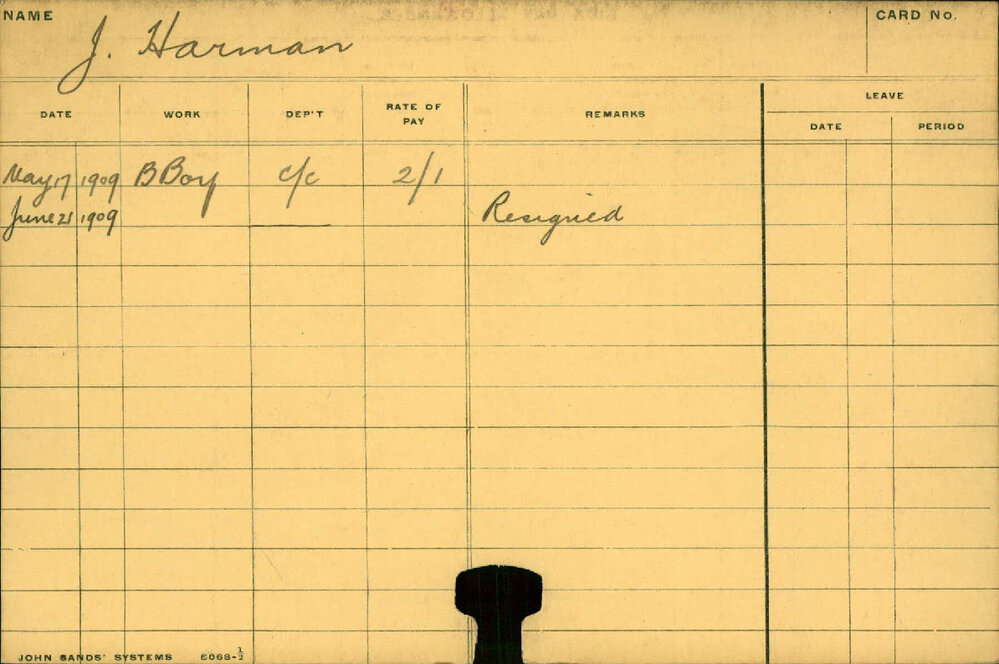 NAME
J. Harman
CARD No.
DATE WORK DEP'T RATE OF PAY REMARKS LEAVE
DATE PERIOD
May 17 1909 BBoy c/c 2/1
June 21 1909 Resigned
JOHN SANDS' SYSTEMS 6068-½